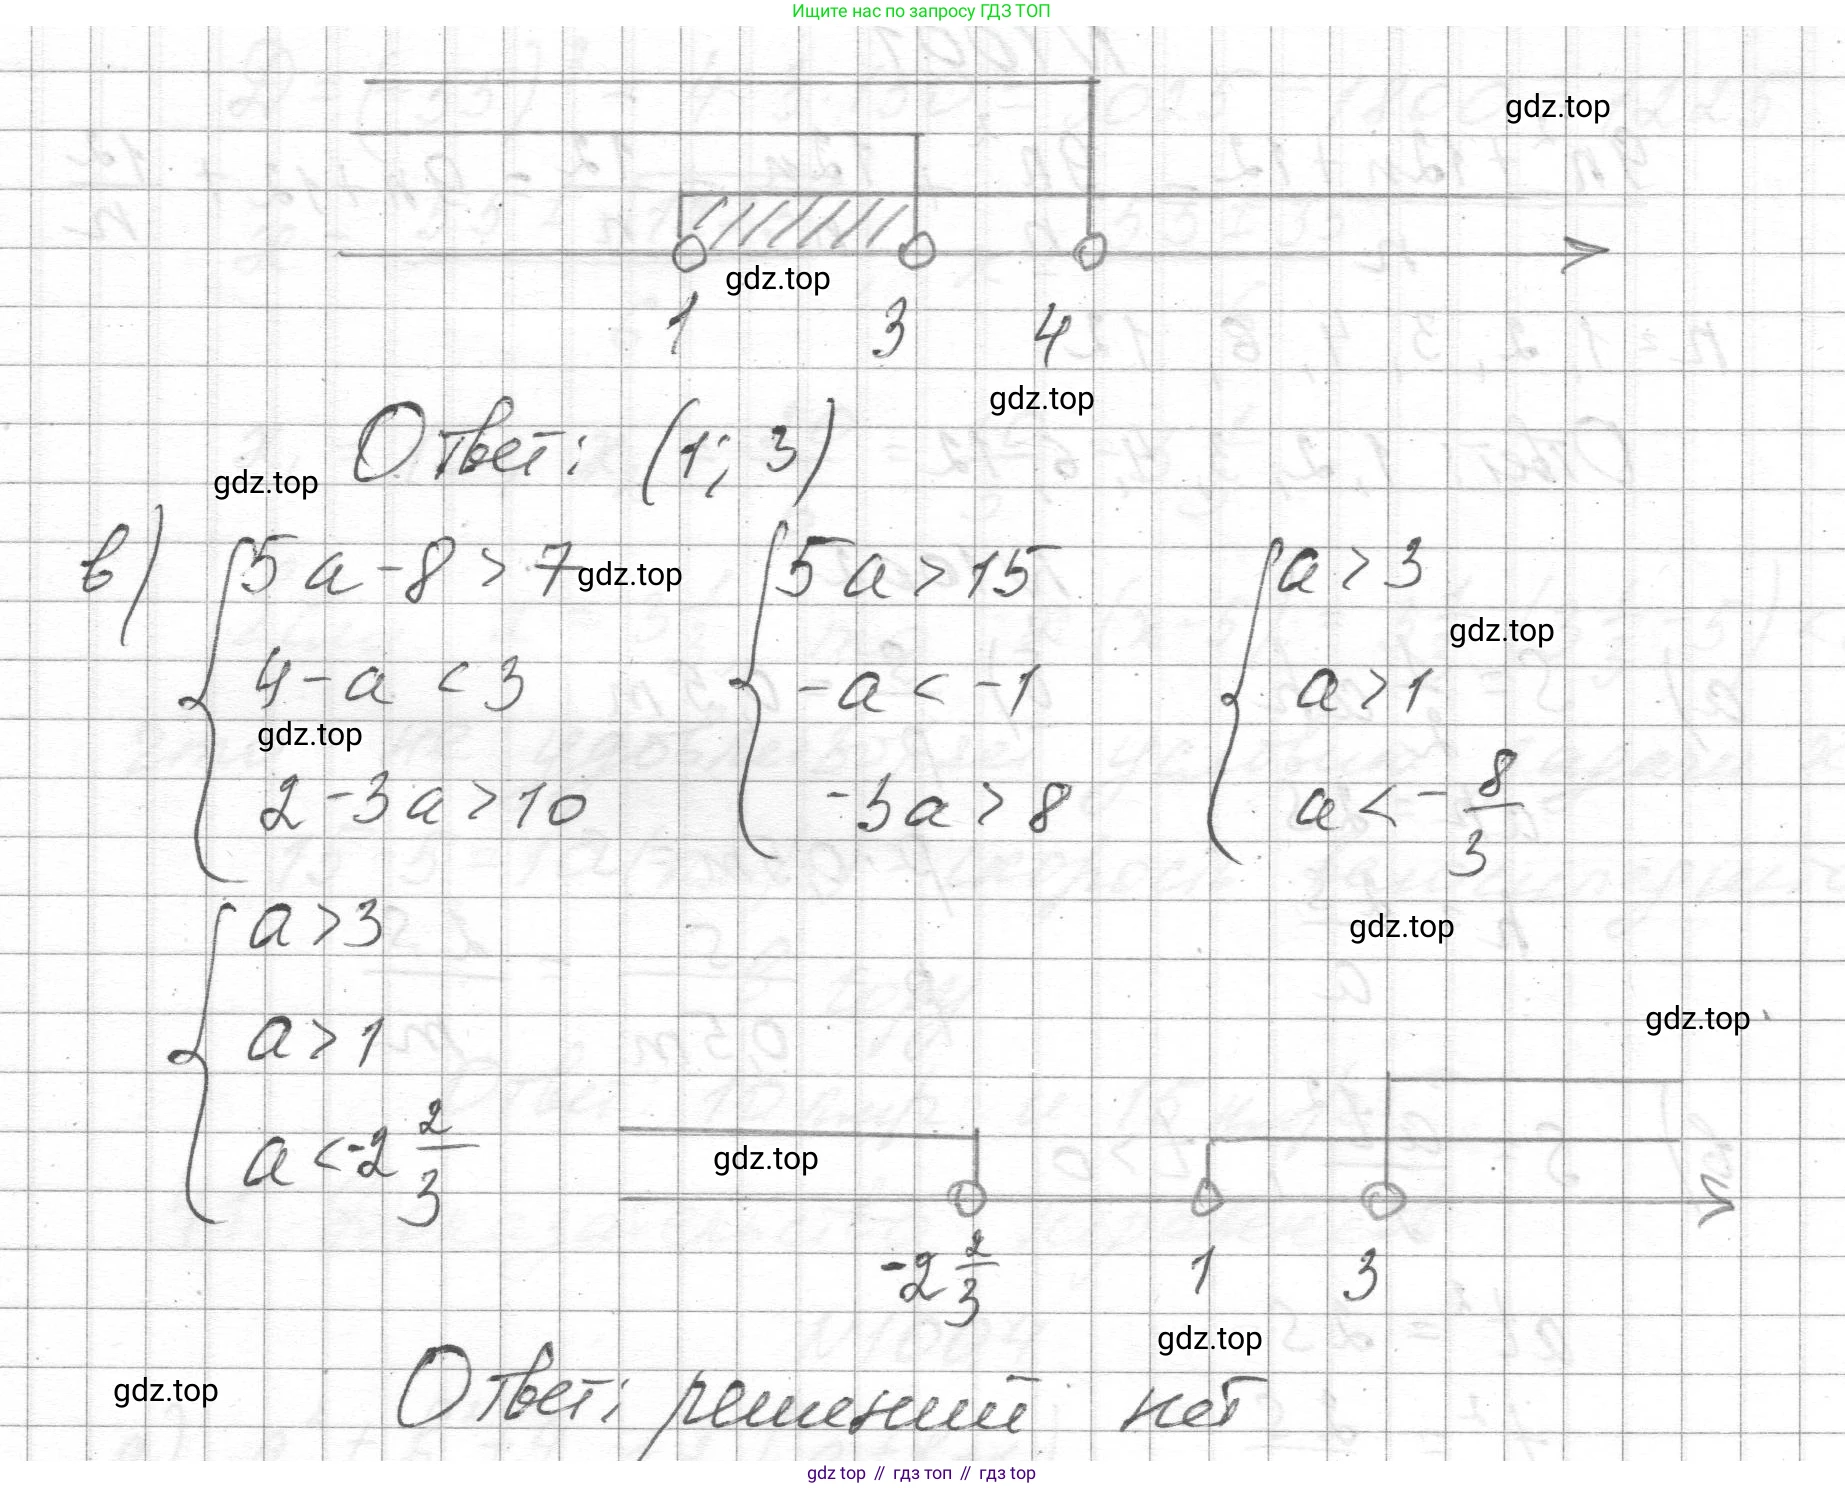 Ищите нас по запросу ГДЗ ТОП
gdz.top
gdz.top
1 3 4
gdz.top
Ответ: (1; 3)
gdz.top
в) 5a - 8 > 7 5a > 15 a > 3
gdz.top
gdz.top
4 - a < 3 -a < -1 a > 1
gdz.top
2 - 3a > 10 -3a > 8 a < - 8/3
a > 3
gdz.top
gdz.top
a > 1
a < -2 2/3
gdz.top
-2 2/3 1 3
gdz.top
gdz.top
Ответ: решений нет
gdz top // гдз топ // гдз top